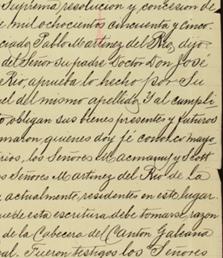 Suprema resolucion y concesion de
e mil ochocientos cincuenta y cinco
ciado Pablo Martinez del Rio, dijo:
del Señor su padre Doctor Don José
Rio, aprueba lo hecho por su
el del mismo apellido. Y al cumpli
to, obligan sus bienes presentes y futuros
maron, quienes doy fé conosco mayo
rios, los Señores en acmanuy Scott
os Señores Martinez del Rio de la
a actualmente, residentes en este lugar
ue de esta escritura debe tomarse razon
de la Cabecera del Canton Galeana
al. Fueron testigos los Señores